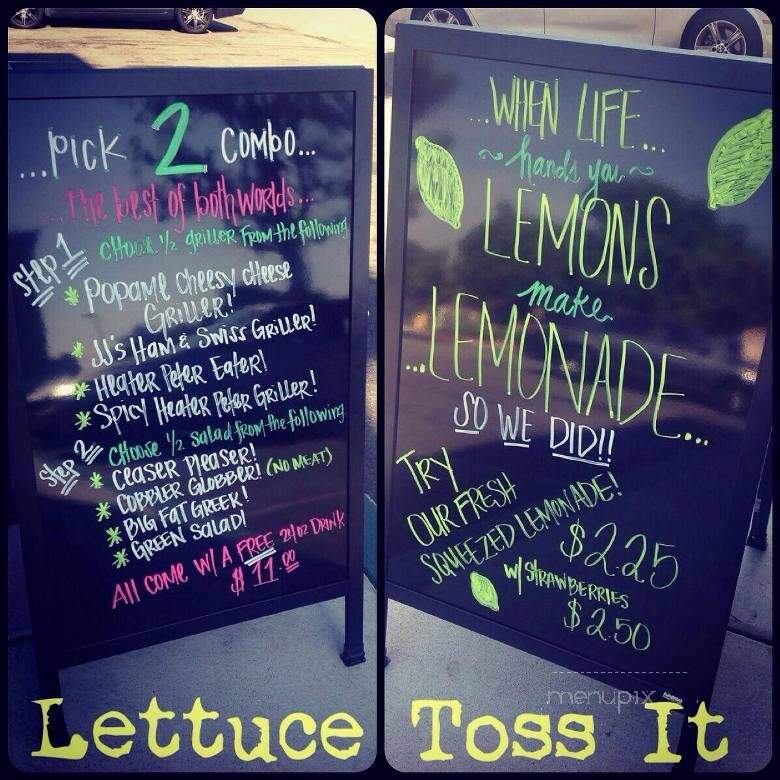 ...Pick 2 combo...
...The best of both worlds...
Step 1 Choose 1/2 griller from the following
* Popame Cheesy cheese
Griller!
* JJ's Ham & Swiss Griller!
* Heater Peter Eater!
* Spicy Heater Peter Griller!
Step 2 Choose 1/2 salad from the following
* Ceaser Pleaser!
* Cobbler Globber! (No Meat)
* Big Fat Greek!
* Green Salad!
All come w/ a FREE 24oz Drink
$11.00
...WHEN LIFE...
~hands you~
LEMONS
make
...LEMONADE...
SO WE DID!!
TRY
OUR FRESH
SQUEEZED LEMONADE!
$2.25
w/ STRAWBERRIES
$2.50
menupix
Lettuce Toss It